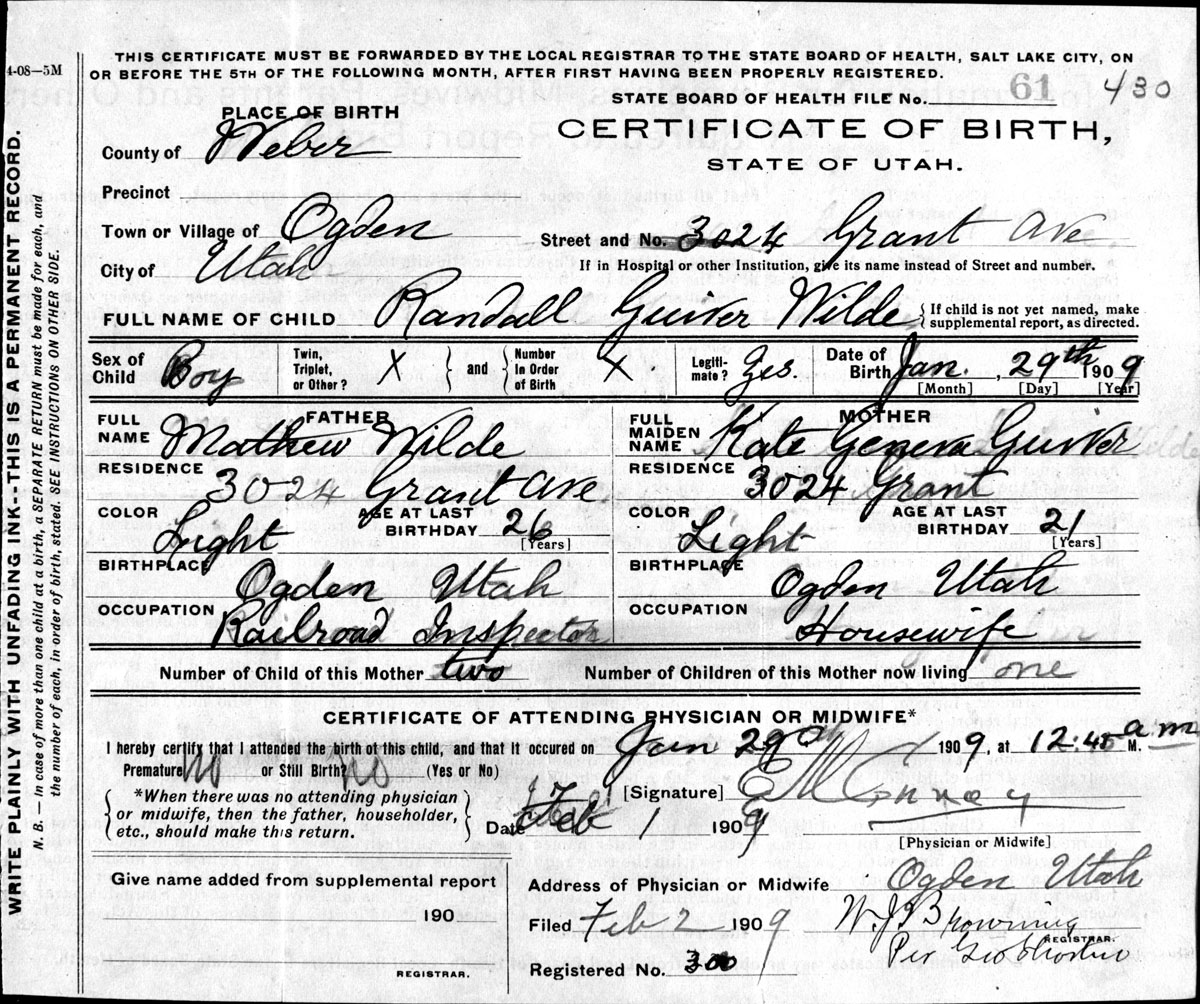 THIS CERTIFICATE MUST BE FORWARDED BY THE LOCAL REGISTRAR TO THE STATE BOARD OF HEALTH, SALT LAKE CITY, ON
4-08—5M OR BEFORE THE 5TH OF THE FOLLOWING MONTH, AFTER FIRST HAVING BEEN PROPERLY REGISTERED.
STATE BOARD OF HEALTH FILE No. 61 430
PLACE OF BIRTH
CERTIFICATE OF BIRTH,
STATE OF UTAH.
County of Weber
Precinct
Town or Village of Ogden
Street and No. 3024 Grant Ave.
City of Utah
If in Hospital or other Institution, give its name instead of Street and number.
FULL NAME OF CHILD Randall Guiver Wilde { If child is not yet named, make supplemental report, as directed.
Sex of Child Boy Twin, Triplet, or Other? X } and { Number in Order of Birth X Legiti-mate? Yes. Date of Birth Jan. 29th 1909
[Month] [Day] [Year]
FATHER
FULL NAME Mathew Wilde
RESIDENCE 3024 Grant Ave
COLOR Light AGE AT LAST BIRTHDAY 26 [Years]
BIRTHPLACE Ogden Utah
OCCUPATION Railroad Inspector
MOTHER
FULL MAIDEN NAME Kate Geneva Guiver
RESIDENCE 3024 Grant
COLOR Light AGE AT LAST BIRTHDAY 21 [Years]
BIRTHPLACE Ogden Utah
OCCUPATION Housewife
Number of Child of this Mother two Number of Children of this Mother now living one
CERTIFICATE OF ATTENDING PHYSICIAN OR MIDWIFE*
I hereby certify that I attended the birth of this child, and that it occured on Jan 29th 1909, at 12:45 a.m M.
Premature? no or Still Birth? no (Yes or No)
{ *When there was no attending physician or midwife, then the father, householder, etc., should make this return. }
[Signature]
Date Feb 1 1909
[Physician or Midwife]
Give name added from supplemental report
190
REGISTRAR.
Address of Physician or Midwife Ogden Utah
Filed Feb 2 1909 W. J. Browning
REGISTRAR.
Per Geo
Registered No.
WRITE PLAINLY WITH UNFADING INK--THIS IS A PERMANENT RECORD.
N. B. — In case of more than one child at a birth, a SEPARATE RETURN must be made for each, and
the number of each, in order of birth, stated. SEE INSTRUCTIONS ON OTHER SIDE.